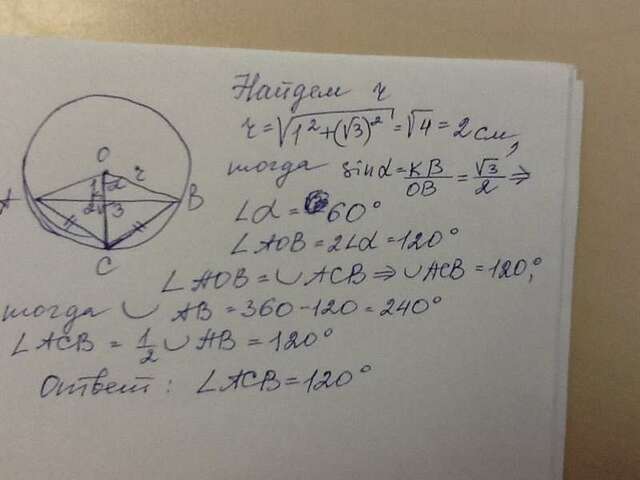 Найдем r
r = √1² + (√3)² = √4 = 2 см,
тогда sinα = KB/OB = √3/2 ⇒
∠α = 60°
∠AOB = 2∠α = 120°
∠AOB = ∪ACB ⇒ ∪ACB = 120°,
тогда ∪ AB = 360 - 120 = 240°
∠ACB = 1/2 ∪AB = 120°
Ответ: ∠ACB = 120°
O
r
1 α
A 2√3 B
C